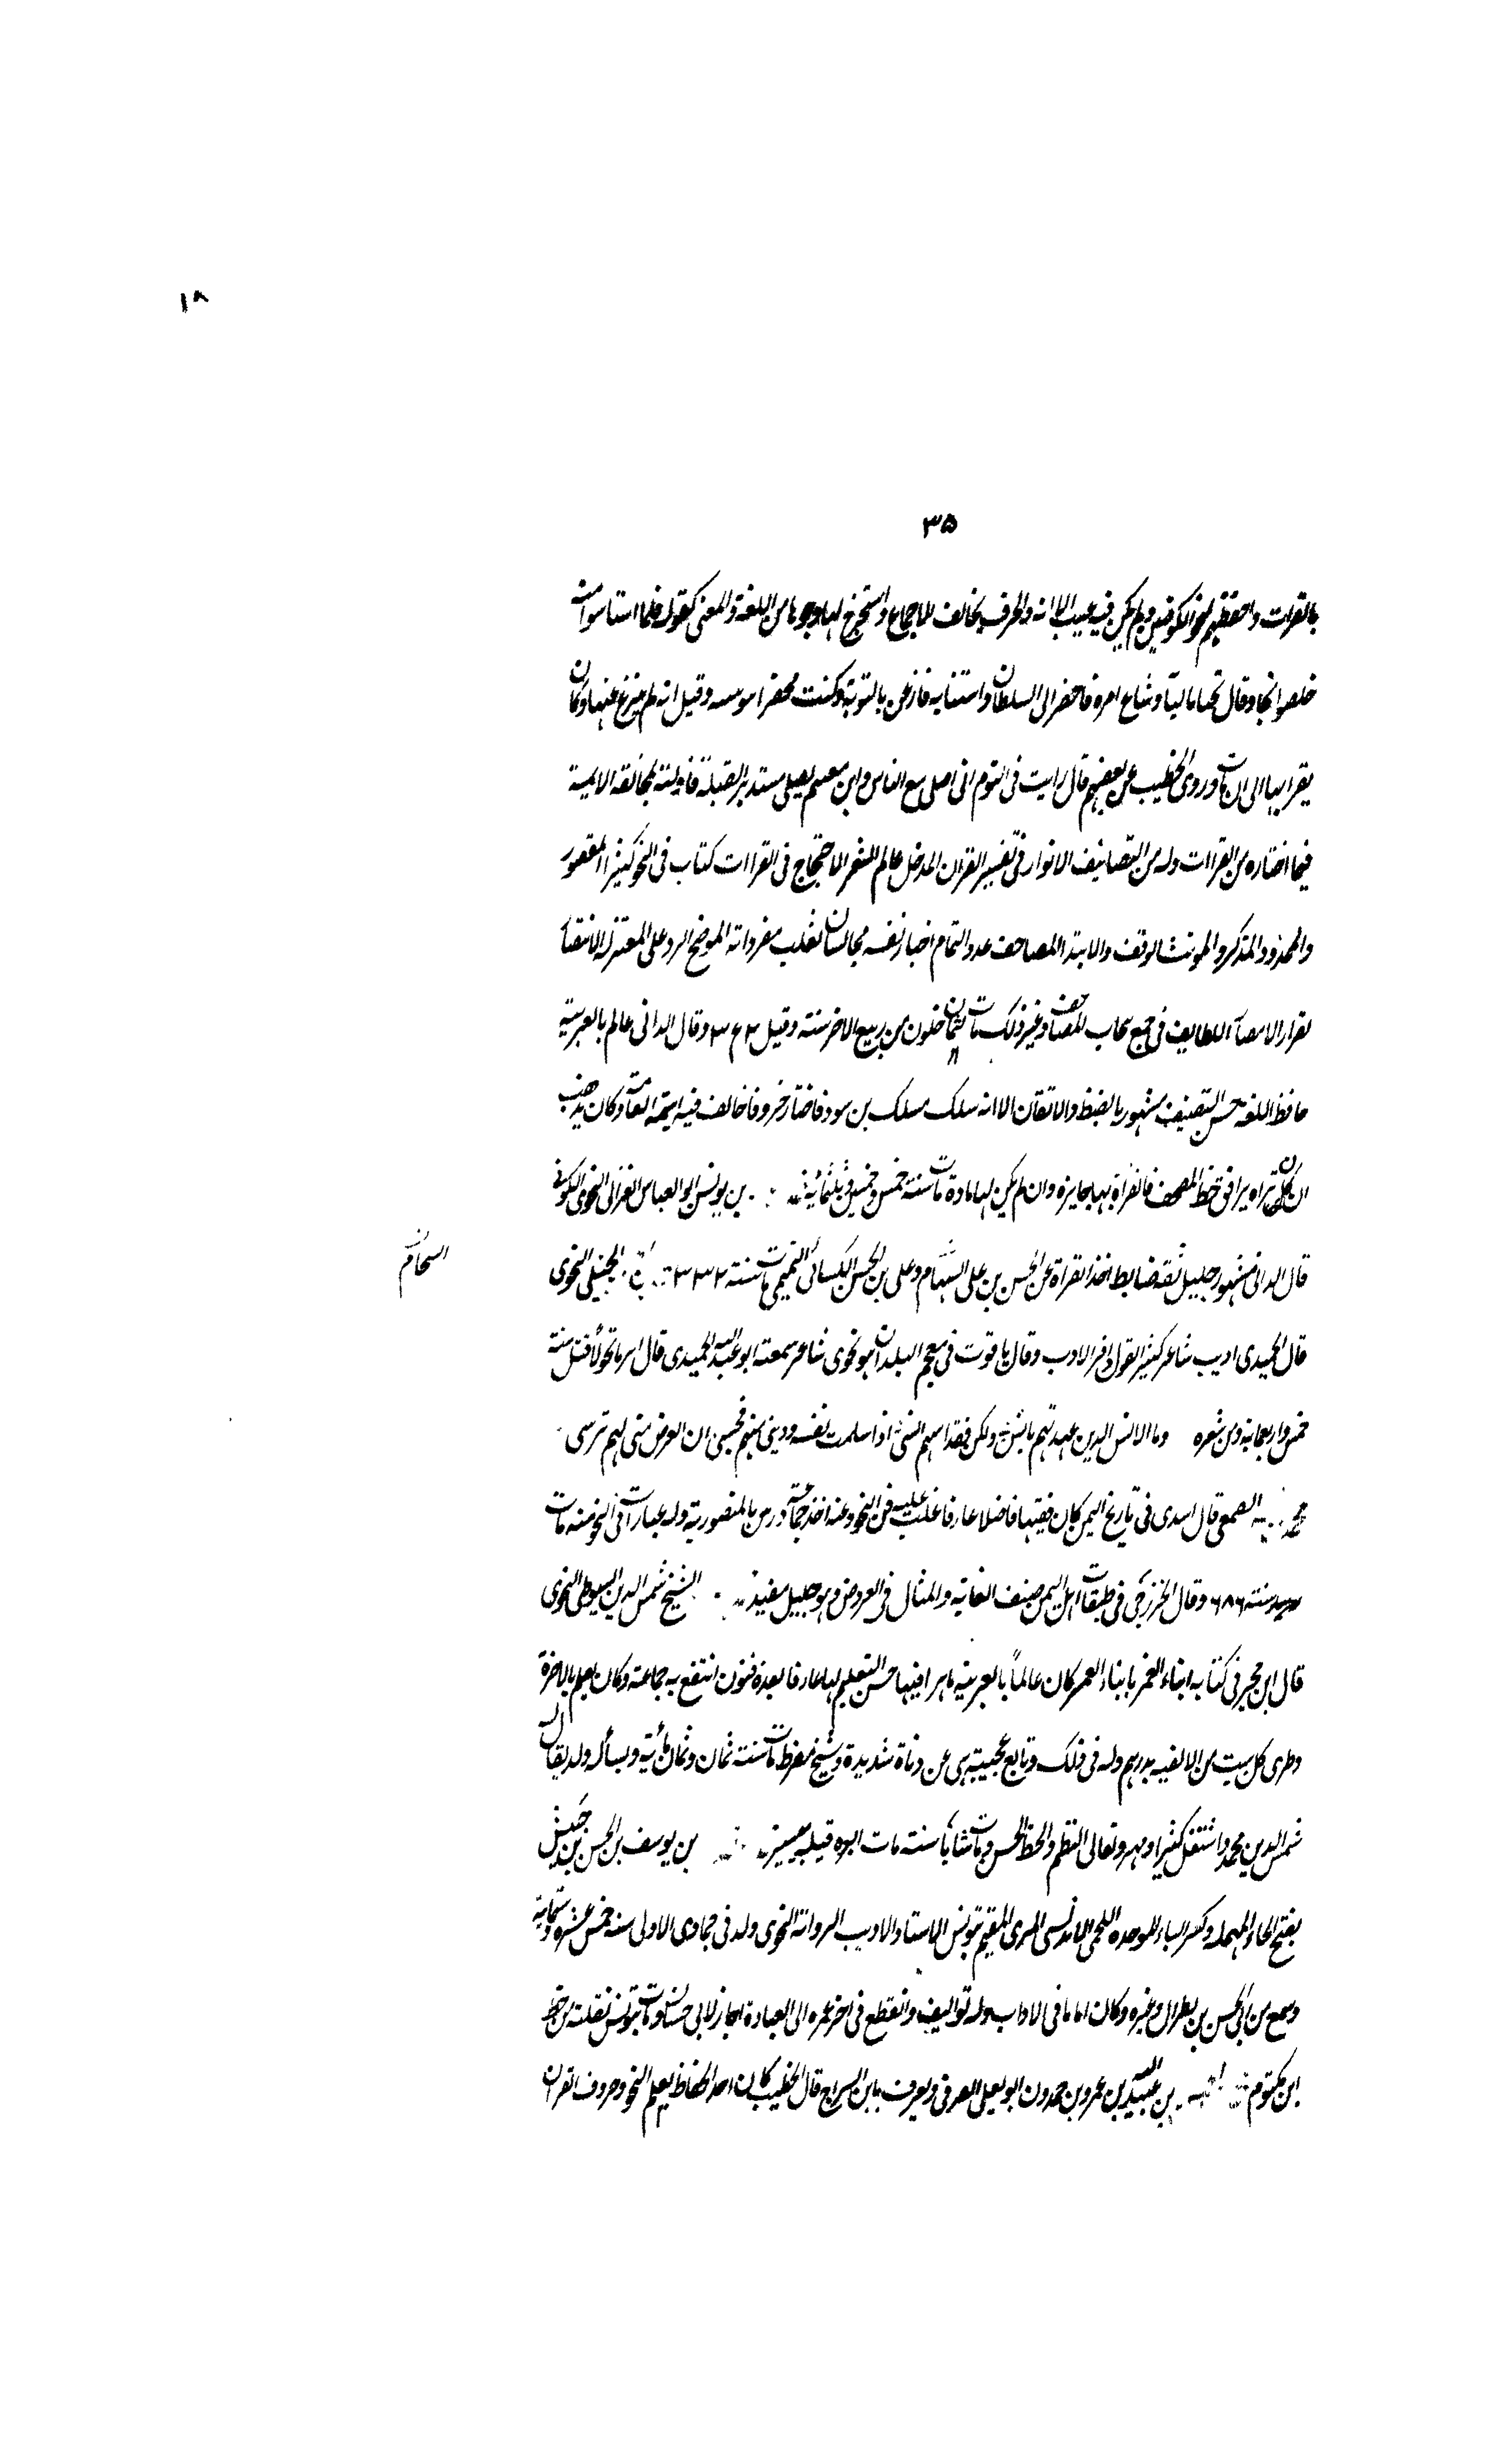 ١٨
٣٥
بالقراات واحفظهم لنحو الكوفيين ولم يكن فيه عيب الا انه قرا بحرف يخالف الاجماع واستخرج لها وجوها من اللغة والمعنى كقوله فلما استاسوا منه
خلصوا نجا وقال نجبا باليا وشاع امره فاحضر الى السلطان واستتابه فاذعن بالتوبة وكتب محضرا بتوبته وقيل انه لم ينزع عنها وكان
يقرا بها الى ان مات وروى الخطيب عن بعضهم قال رايت في النوم اني اصلي مع الناس وابن مقسم يصلي مستدبر القبلة فاولته لمخالفة الايمة
فيما اختاره من القراات وله من التصانيف الانوار في تفسير القران المدخل عالم الشعر الاحتجاج في القراات كتاب في النحو كبير المقصور
والممدود والمذكر والمونث الوقف والابتدا المصاحف عدد التمام اخبار نفسه مجالسات ثعلب مفرداته الموضح الرد على المعتزلة الانتصا
لقراء الامصار اللطايف في جمع هجاب المصاحف وغير ذلك مات لثمان خلون من ربيع الاخر سنة وقيل ٣ وقال الداني عالم بالعربية
حافظ اللغة حسن التصنيف مشهور بالضبط والاتقان الا انه سلك مسلك بن سود فاختار حروفا خالف فيه ايمة العامة وكان يذهب
ان كل قراه يوافق خط المصحف فالقراة بها جايزة وان لم يكن لها مادة مات سنة خمس وخمسين وثلثمائة بن يونس ابو العباس الغزالي النحوى الكوفي
قال الداني مشهور جليل ثقة ضابط اخذ القراة عن الحسن بن علي الشحام وعلي بن الحسن الكسائي التميمي مات سنة ٣٣٢ الجبلي النحوى
الشحام
قال الحميدى اديب شاعر كثير القول وافر الادب وقال ياقوت في معجم البلدان هو نحوى شاعر سمعته ابو عبد الله الحميدى قتل سنة
خمس واربعمائة ومن شعره وما الانس الدين عهدتهم بانس ولكن فقد انسهم انس اذا سلمت نفسى ودينى منهم فحسبى ان العرض منى لهم ترسى
محمد الصمعي قال اسدى في تاريخ اليمن كان فقيها فاضلا عارفا غلب عليه فن النحو وعنه اخذ جماعة ودرس بالمنصورية وله عبارات في النحو مات
سنة ٦٨٦ وقال الخزرجي في طبقات اهل اليمن صنف الغاية والمثال في العروض وهو جليل مفيد الشيخ شمس الدين السيوطي النحوى
قال ابن حجر في كتابه انباء الغمر بابناء العمر كان عالماً بالعربية ماهرا فيها حسن التعليم لها عارفا بعدة فنون انتفع به جماعة وكان يعلم بالاجرة
وطرى كل بيت من الالفيه بدرهم وله في ذلك وقايع عجيبة ينبى عن دناة شديدة وشح مفرط مات سنة ثمان وثمان مائة وبساله ولد يقال له
شمس الدين محمد اشتغل كثيرا ومهر وتعانى النظم والخط الحسن ومات شابا سنة مات ابوه قبله بيسير بن يوسف بن الحسن بن حبيش
بفتح الحاء المهملة وكسر الباء الموحدة اللخمى الاندلسى المرى المقيم بتونس الاستاد الاديب الرواته النحوى ولد في جمادى الاولى سنة خمس عشره وستمائة
وسمع من ابي الحسن بن بطرال وغيره وكان اماما في الاداب وله تواليف وانقطع في اخر عمره الى العبادة اجاز لابى حيان ومات بتونس نقلته من خط
ابن مكتوم بن عبيد الله بن عمرو بن حمدون ابو يعلى الصرفي ويعرف بابن السراج قال الخطيب كان احد الحفاظ يعلم النحو وحروف القران